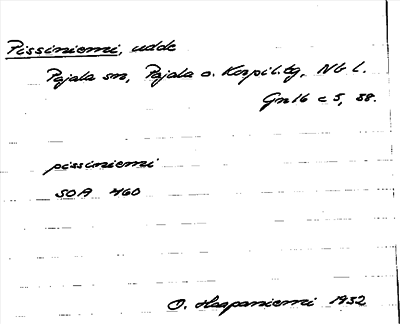 Pissiniemi, udde
Pajala sn, Pajala o. Korpil. tg, Nb l.
Gn 16 c 5, 88.
pissiniemi
SOA 460
O. Haapaniemi 1932